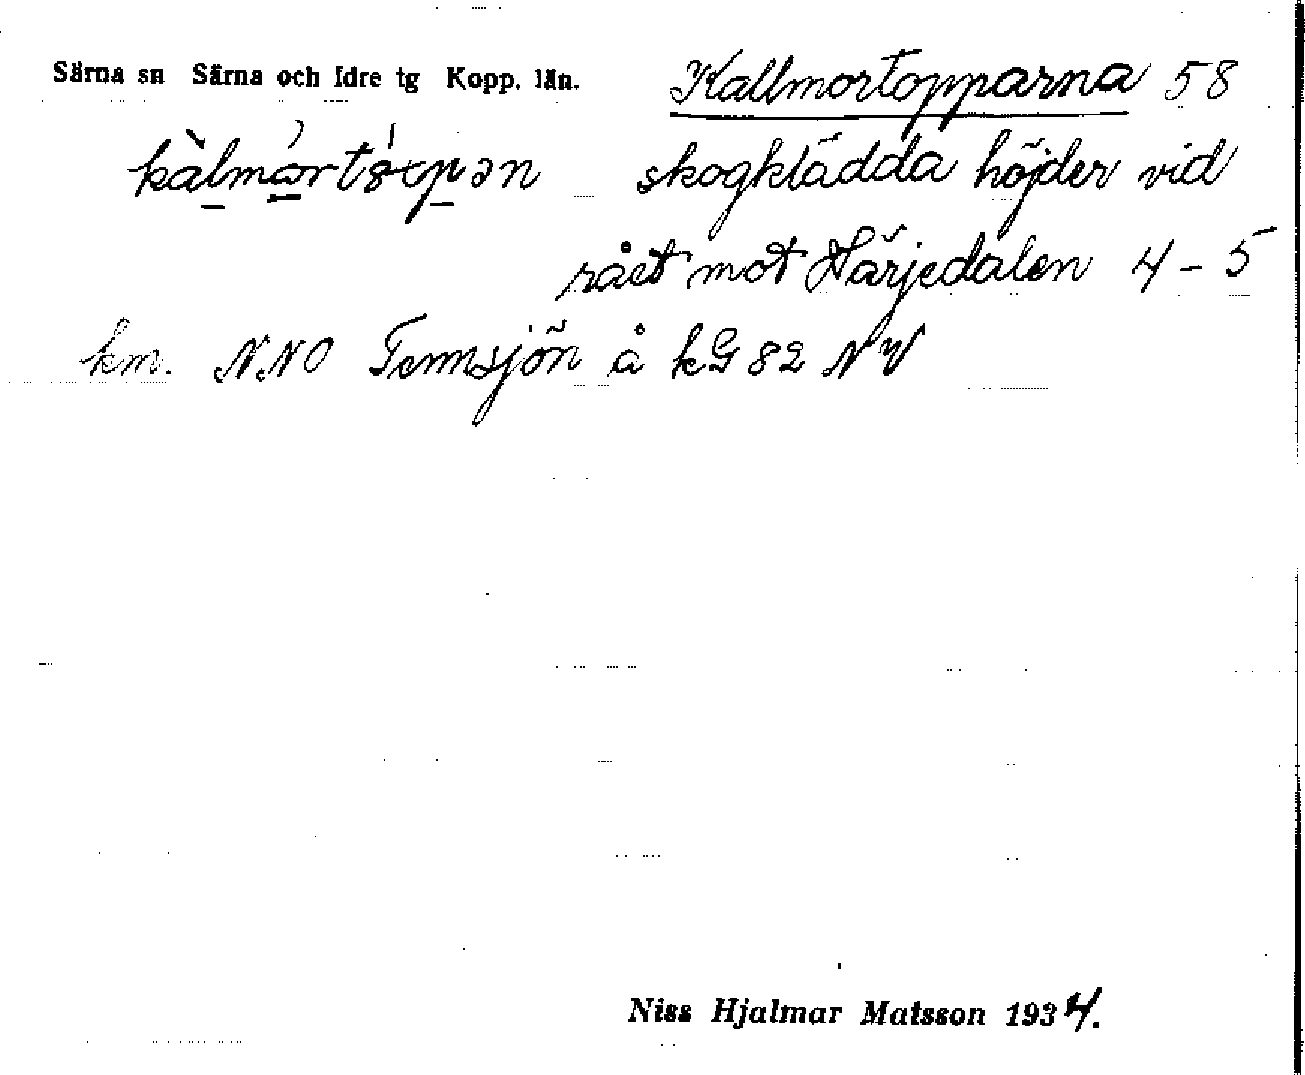 Särna sn Särna och Idre tg Kopp. län. Kallmortopparna 58
skogklädda höjder vid
rået mot Härjedalen 4-5
km. NNO Tennsjön å kG 82 NV
Niss Hjalmar Matsson 1934.